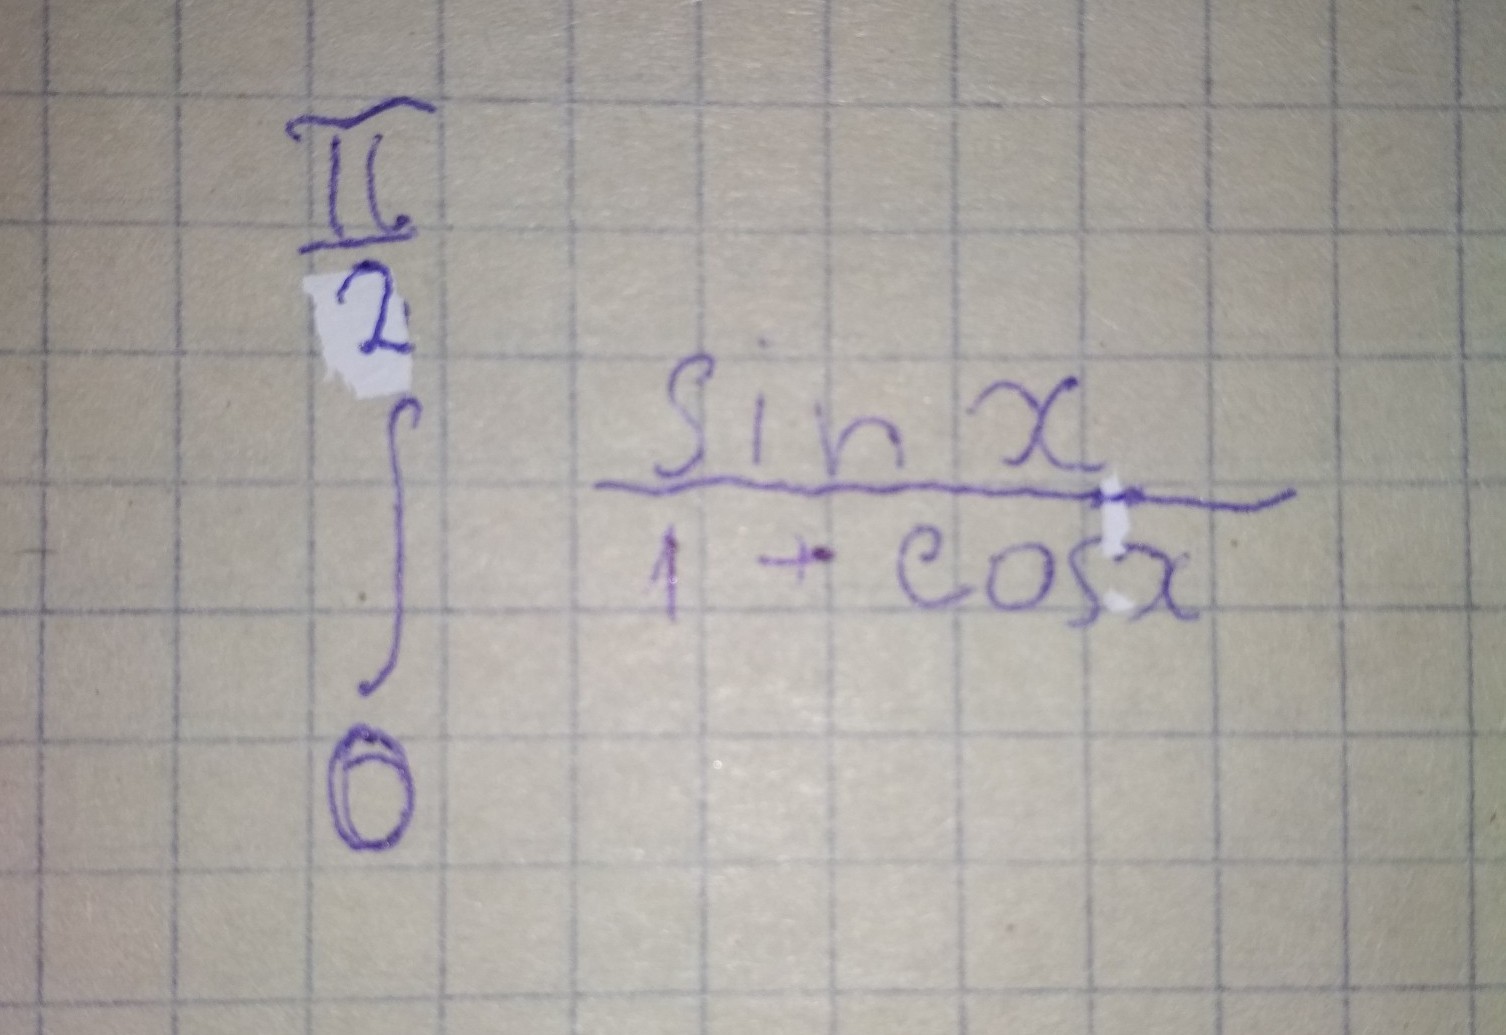 π
2
∫
sin x
1 + cosx
0